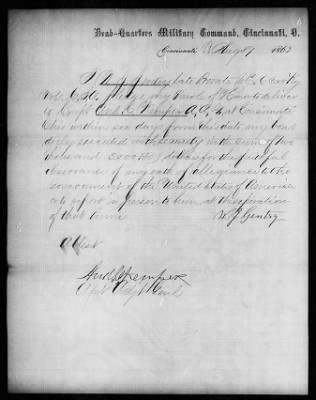 Head-Quarters Military Command, Cincinnati, O.
Cincinnati, Augt 1863
I W. J. Gentry late Private Co. C
Vols C.S.A. pledge my Parole of Honor to deliver
to Capt And. C. Kemper A.A. at Cincinnati
Ohio within ten days from this date, my bond
duly executed with security in the sum of two
thousand (2000) dollars for the faithful
observance of my oath of allegiance to the
government of the United States of America
or to report in person to him at the expiration
of that time.
W. J. Gentry
Attest
And. C. Kemper
Capt